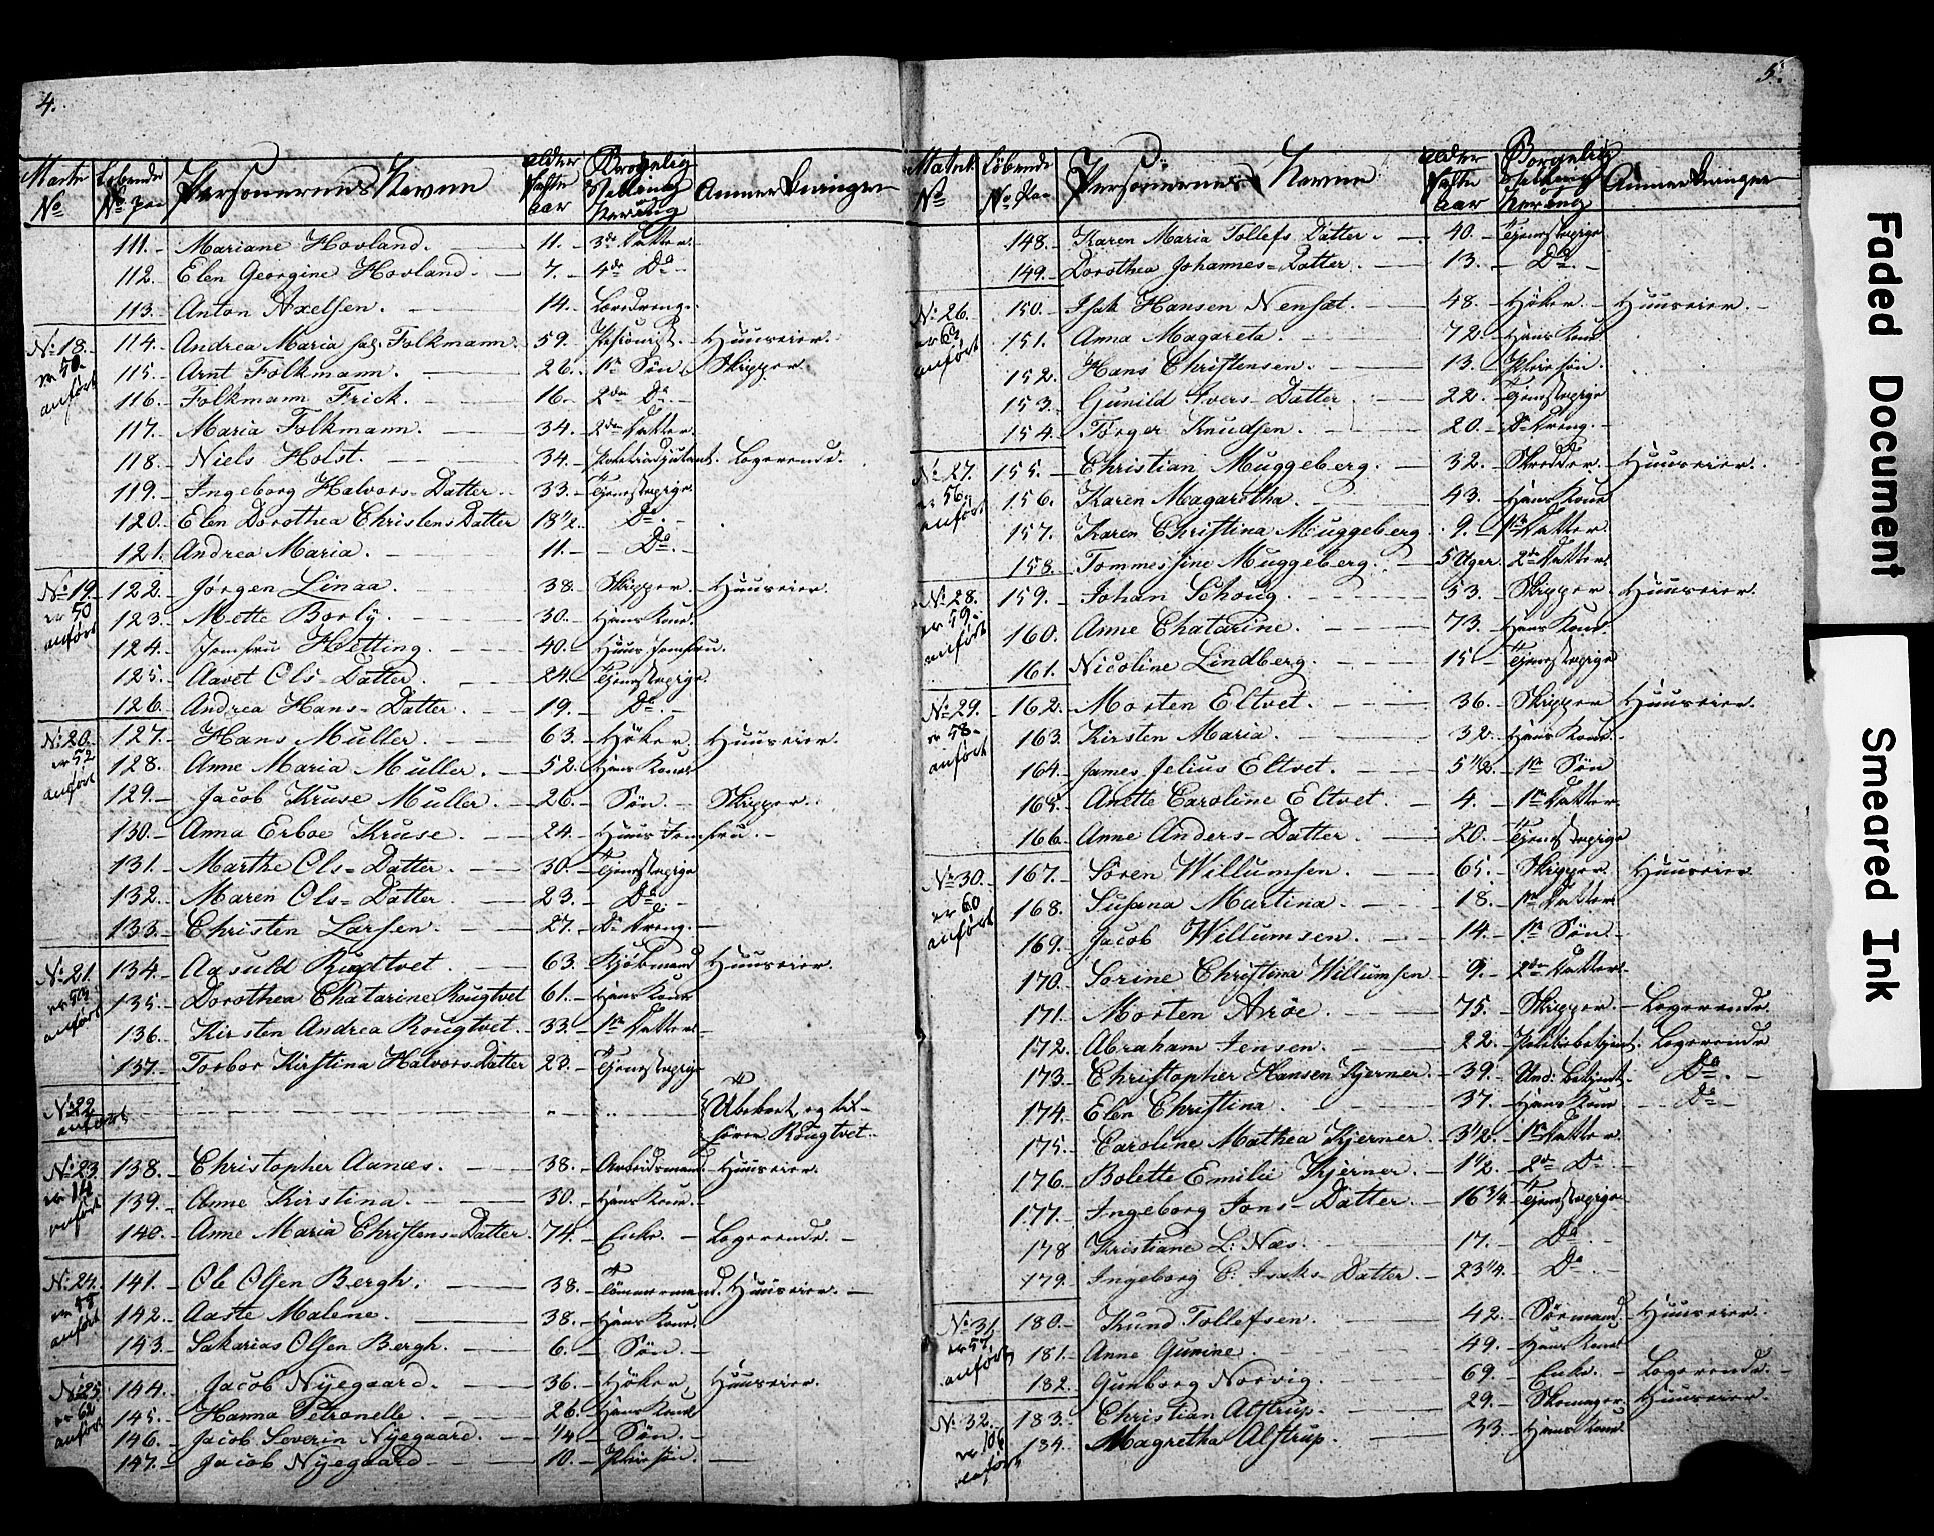 4.
Matr No Løbende No Paa Personernes Navne alder sidste aar Borgelig Stilling Næring Anmærkninger
111. Mariane Hovland. 11. 3de Datter
112. Elen Georgine Hovland. 7. 4de Do
113. Anton Axelsen. 14. Læredreng.
No 18. 114. Andrea Maria sal. Folkmann. 59. Pensionist. Huuseier.
er 70. anført 115. Arnt Folkmann. 26. 1ste Søn Skipper.
116. Folkmann Frick. 16. 2den Do
117. Maria Folkmann. 34. 2den Datter.
118. Niels Holst. 34. Logerende.
119. Ingeborg Halvors-Datter. 33. Tjenestepige
120. Elen Dorothea Christens Datter 18 1/2. Do
121. Andrea Maria. 11. Do
No 19. 122. Jørgen Linaa. 38. Skipper. Huuseier.
er 50 anført 123. Mette Borly. 30. Hans Kone.
124. Jomfru Hetting. 40. Huus Jomfru.
125. Aavet Ols-Datter. 24. Tjenestepige.
126. Andrea Hans-Datter. 19. Do
No 20. 127. Hans Muller. 63. Høker. Huuseier.
er 52 anført 128. Anne Maria Muller. 52. Hans Kone
129. Jacob Kruse Muller. 26. Søn. Skipper.
130. Anna Erboe Kruse. 24. Huus Jomfru.
131. Marthe Ols-Datter. 30. Tjenestepige
132. Maren Ols-Datter. 23. Do
133. Christen Larsen. 27. Do Dreng.
No 21. 134. Aasuld Rugtvet. 63. Kjøbmand Huuseier.
er anført 135. Dorothea Chatarine Rougtvet 61. Hans Kone
136. Kirsten Andrea Rougtvet. 33. 1ste Datter
137. Torbor Kirstina Halvors Datter 23. Tjenestepige
No 22 anført Ubeboet og til-
hører Rougtvet.
No 23 138. Christopher Aanæs. 38. Arbeidsmand. Huuseier.
er 14 anført 139. Anne Kirstina. 30. Hans Kone.
140. Anne Maria Christens-Datter. 74. Enke. Logerende.
No 24. 141. Ole Olsen Bergh. 38. Tømmermand. Huuseier.
er anført 142. Aaste Malene. 38. Hans Kone.
143. Sakarias Olsen Bergh. 6. Søn.
No 25 144. Jacob Nyegaard. 36. Høker Huuseier.
er 62 anført 145. Hanna Petronelle. 26. Hans Kone
146. Jacob Severin Nyegaard. 1/4 Søn.
147. Jacob Nyegaard 10. Pleiesøn.
5.
Matr No Løbende No Paa Personernes Navne alder sidste aar Borgelig Stilling Næring Anmærkninger
148. Karen Maria Tollefs Datter. 40. Tjenestepige
149. Dorothea Johannes-Datter. 13. Do
No 26. 150. Isak Hansen Nenset. 48. Høker. Huuseier.
er 63 anført 151. Anna Magareta. 72. Hans Kone
152. Hans Christensen. 13. Pleiesøn.
153. Gunild Ivers-Datter. 22. Tjenestepige
154. Torger Knudsen. 20. Do Dreng.
No 27. 155. Christian Muggeberg. 32. Skredder. Huuseier.
er 56 anført 156. Karen Magaretha. 43. Hans Kone
157. Karen Christina Muggeberg. 9. 1ste Datter
158. Tommessine Muggeberg. 5 Uger 2den Datter.
No 28. 159. Johan Schoug. 53. Skipper Huuseier.
er 59. anført 160. Anne Chatarine. 73. Hans Kone.
161. Nicoline Lindberg. 15 Tjenestepige
No 29. 162. Morten Eltvet. 36. Skipper Huuseier.
er 58. anført 163. Kirsten Maria. 32. Hans Kone.
164. James Jelius Eltvet. 5 1/2. 1ste Søn
165. Anette Caroline Eltvet. 4. 1ste Datter.
166. Anne Anders-Datter. 20. Tjenestepige
No 30. 167. Søren Willumsen. 65. Skipper. Huuseier
er 60 anført 168. Susana Martina. 18. 1ste Datter
169. Jacob Willumsen. 14. 1ste Søn
170. Sorine Christina Willumsen 9. 2den Datter.
171. Morten Arøe. 75. Skipper. Logerende.
172. Abraham Jensen. 22. Politiebetjent. Logerende
173. Christopher Hansen Kjerner. 39. Und: Betjent. Do
174. Elen Christina. 37. Hans Kone Do
175. Caroline Mathea Kjerner. 3 1/2. 1ste Datter.
176. Bolette Emilie Kjerner. 1 1/2. 2den Do
177. Ingeborg Jons-Datter. 16 3/4. Tjenestepige
178 Kristiane L: Næs. 17. Do
179. Ingeborg C: Isaks-Datter. 23 1/4. Do
No 31 180. Knud Tollefsen. 42. Sømand. Huuseier.
er 57 anført 181. Anne Gunine. 49. Hans Kone
182. Gunborg Norvig. 69. Enke. Logerende.
No 32. 183. Christian Alstrup. 29. Skomager. Huuseier.
er 106 anført 184. Magretha Alstrup. 33. Hans Kone
Faded Document
Smeared Ink